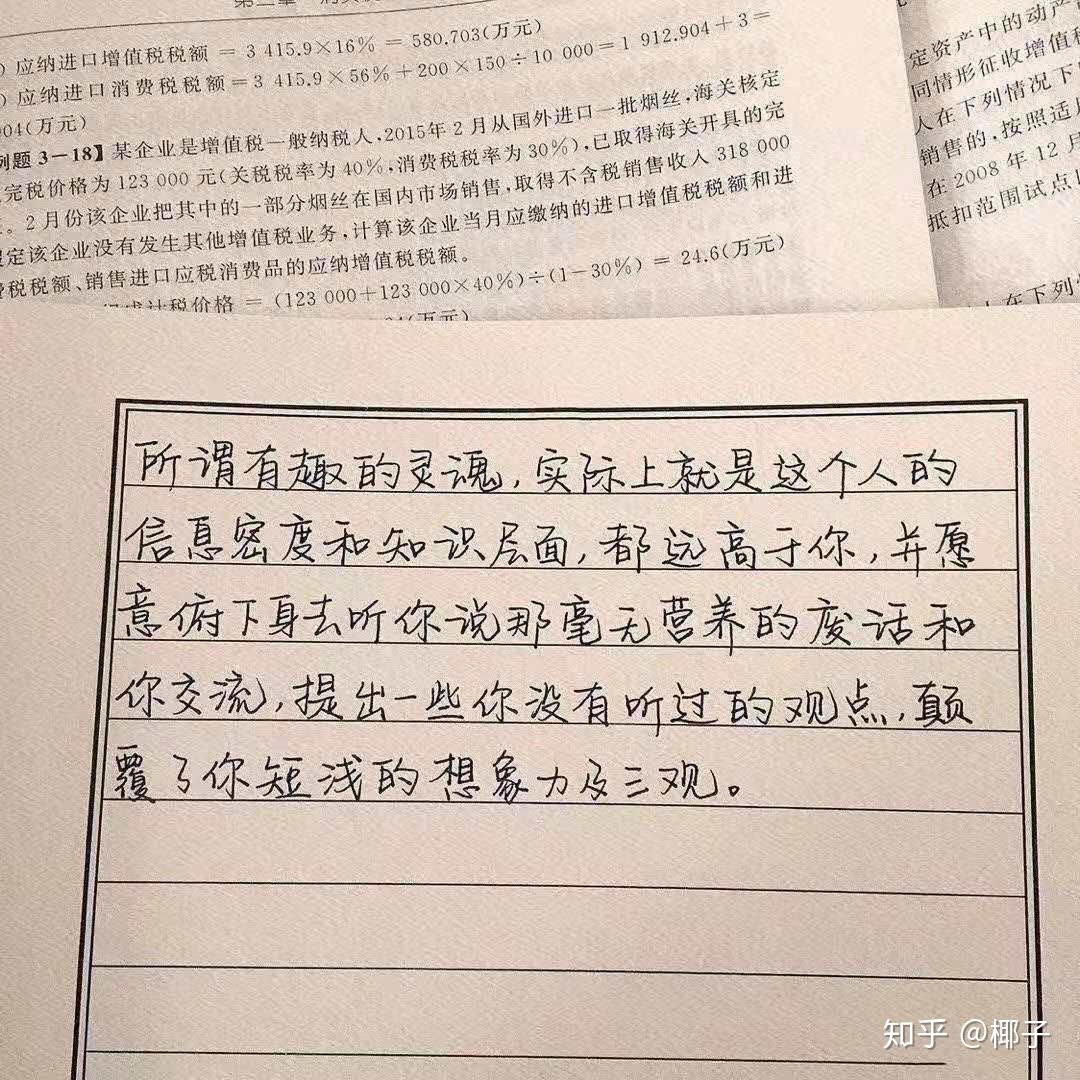 应纳进口增值税税额 = 3 415.9×16% = 580.703(万元)
应纳进口消费税税额=3 415.9×56%+200×150÷10 000=1 912.904+3=
04(万元)
例题 3-18】某企业是增值税一般纳税人,2015年2月从国外进口一批烟丝,海关核定
完税价格为123 000元(关税税率为40%,消费税税率为30%),已取得海关开具的完
。2月份该企业把其中的一部分烟丝在国内市场销售,取得不含税销售收入318 000
定该企业没有发生其他增值税业务,计算该企业当月应缴纳的进口增值税税额和进
费税税额、销售进口应税消费品的应纳增值税税额。
计税价格 = (123 000+123 000×40%)÷(1-30%) = 24.6(万元)
(万元)
定资产中的动产
同情形征收增值税
人在下列情况下
销售的,按照适用
在2008年12月
抵扣范围试点
在下列
所谓有趣的灵魂,实际上就是这个人的
信息密度和知识层面,都远高于你,并愿
意俯下身去听你说那毫无营养的废话和
你交流,提出一些你没有听过的观点,颠
覆了你短浅的想象力及三观。
知乎 @椰子